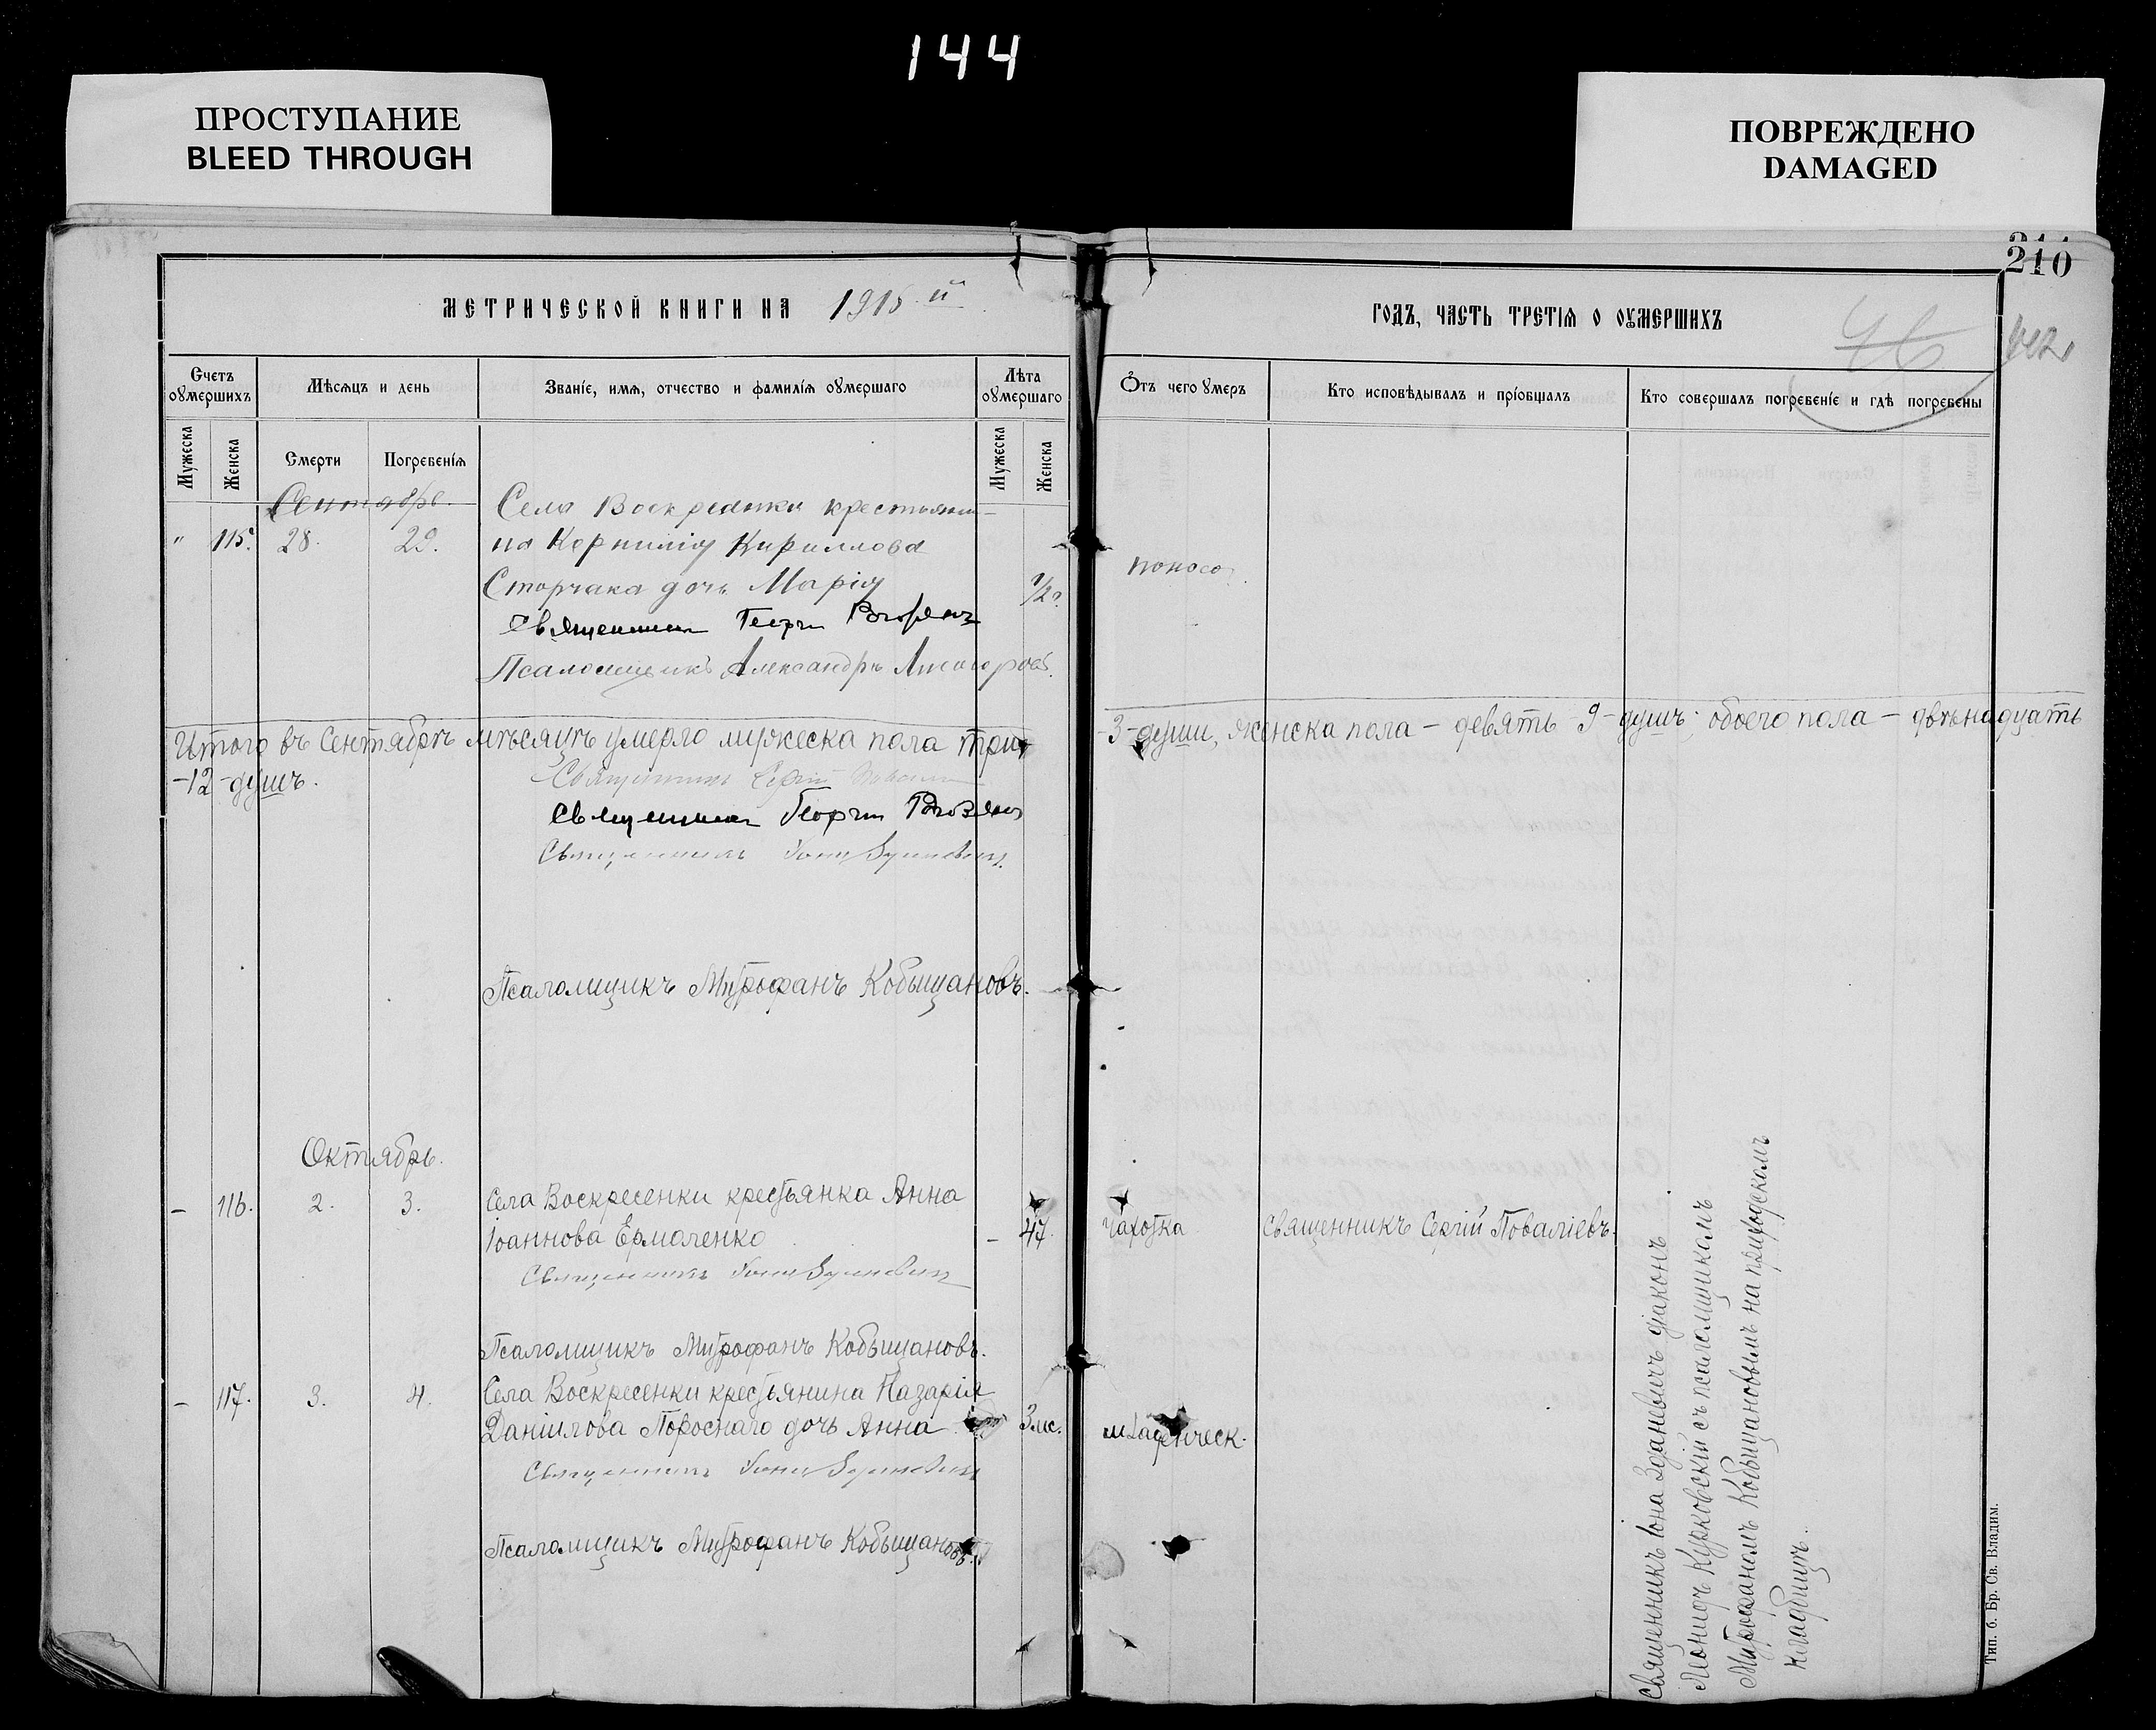 144
ПРОСТУПАНИЕ
BLEED THROUGH
ПОВРЕЖДЕНО
DAMAGED
210
442
МЕТРИЧЕСКОЙ КНИГИ НА 1915-й
ГОДЪ, ЧАСТЬ ТРЕТІЯ О ОУМЕРШИХЪ
Счетъ оумершихъ
Мѣсяцъ и день
Званіе, имя, отчество и фамилія оумершаго
Лѣта оумершаго
Отъ чего умеръ
Кто исповѣдывалъ и пріобщалъ
Кто совершалъ погребеніе и гдѣ погребены
Мужеска
Женска
Смерти
Погребенія
Мужеска
Женска
Сентябрь.
Села Воскресенки крестьяни-
" 115. 28. 29. на Корнилія Кириллова
поносъ
Сторчака дочь Марія 1/2
Священникъ Георгій
Псаломщикъ Александръ
Итого въ Сентябрѣ мѣсяцѣ умерло мужеска пола три -3-души, женска пола - девять -9-душъ; обоего пола - двѣнадцать
-12-душъ.
Священникъ Сергій
Священникъ Георгій
Священникъ Іона Зданевичъ
Псаломщикъ Митрофанъ Кобыщановъ.
Октябрь.
- 116. 2. 3. Села Воскресенки крестьянка Анна
Іоаннова Ермоленко - 47. чахотка Священникъ Сергій Поваліевъ.
Священникъ Іона Зданевичъ
Псаломщикъ Митрофанъ Кобыщановъ.
- 117. 3. 4. Села Воскресенки крестьянина Назарія
Даніилова Пороснаго дочь Анна 3 мс. младенческ.
Священникъ Іона Зданевичъ
Псаломщикъ Митрофанъ Кобыщановъ.
Священникъ Іона Зданевичъ діаконъ
Леонидъ Курковскій съ псаломщикомъ
Митрофаномъ Кобыщановымъ на приходскомъ
кладбищѣ.
Тип. б. Бр. Св. Владим.